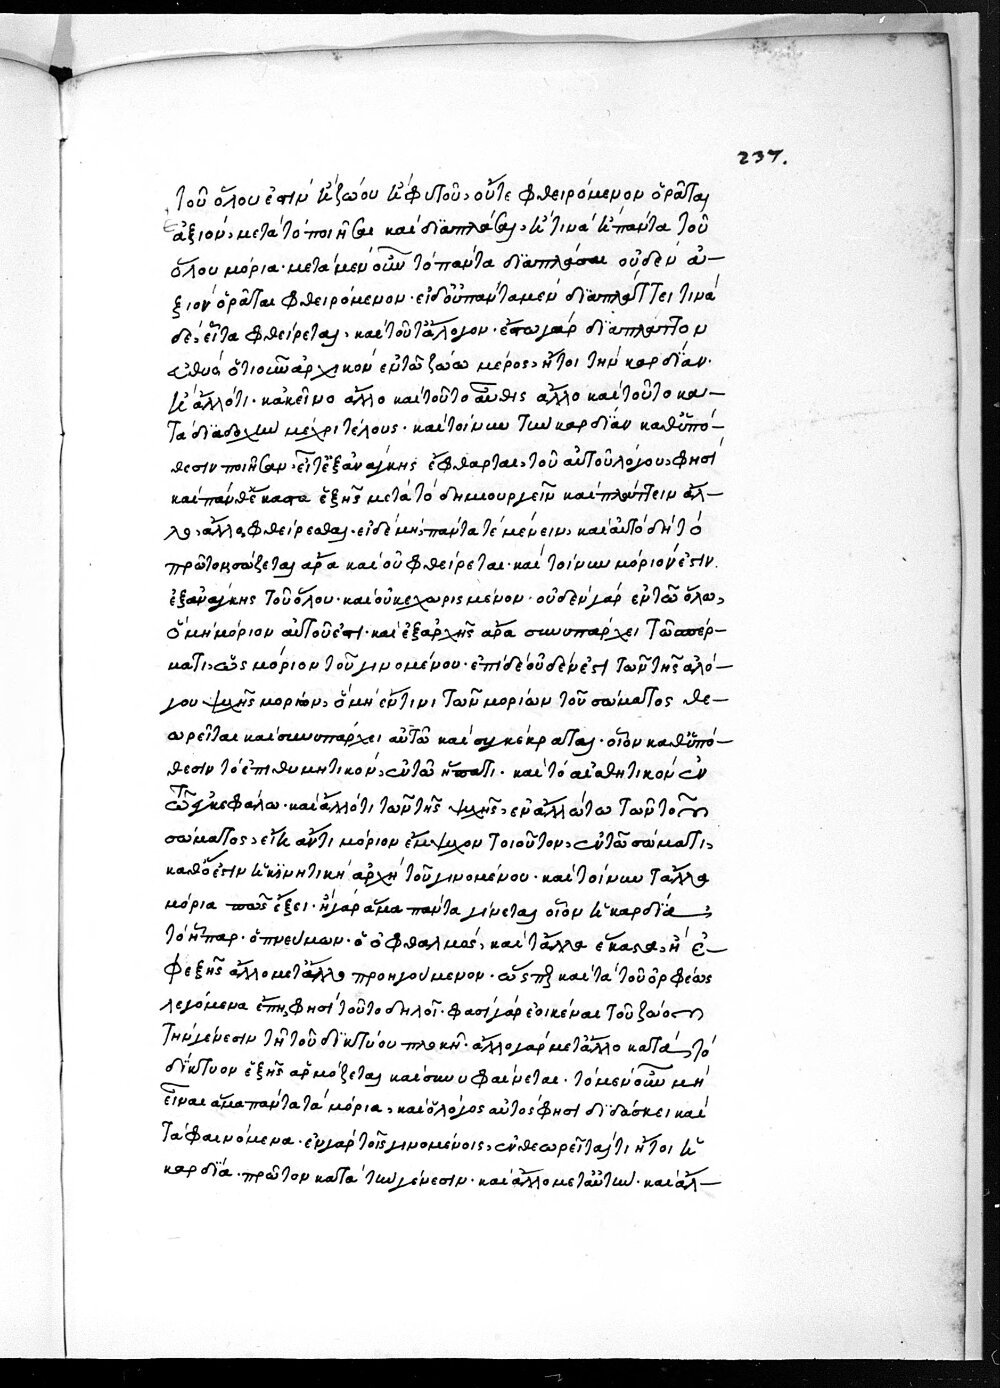 237.
τοῦ ὅλου ἐστὶν ἢ ζώου ἢ φυτοῦ, οὔτε φθειρόμενον ὁρᾶται
ἄξιον, μετὰ τὸ ποιῆσαι καὶ διαπλάσαι, ἢ τινὰ ἢ πάντα τοῦ
ὅλου μόρια· μετὰ μὲν οὖν τὸ πάντα διαπλάσαι οὐδὲν ἄ-
ξιον ὁρᾶται φθειρόμενον· εἰ δ' οὐ πάντα μὲν διαπλάττει τινὰ
δὲ, εἶτα φθείρεται, καὶ τοῦτ' ἄλογον· ἔστω γὰρ διαπλάττον
εὐθὺς ὁτιοῦν ἀρχικὸν ἐν τῷ ζώῳ μέρος, ἤτοι τὴν καρδίαν·
ἢ ἄλλό τι· κἀκεῖνο ἄλλο καὶ τοῦτο αὖθις ἄλλο καὶ τοῦτο κα-
τὰ διαδοχὴν μέχρι τέλους· καὶ τοίνυν τὴν καρδίαν καθ' ὑπό-
θεσιν ποιῆσαν, εἶτ' ἐξ ἀνάγκης ἔφθαρται, τοῦ αὐτοῦ λόγου, φησὶ
καὶ πάνθ' ἕκαστα ἑξῆς μετὰ τὸ δημιουργεῖν καὶ πλάττειν ἄλ-
λο, ἄλλα φθείρεσθαι· εἰ δὲ μὴ, πάντα τὲ μένειν, καὶ αὐτὸ δὴ τὸ
πρῶτον, σώζεται ἄρα καὶ οὐ φθείρεται· καὶ τοίνυν μόριόν ἐστιν
ἐξ ἀνάγκης τοῦ ὅλου· καὶ οὐ κεχωρισμένον· οὐδὲν γὰρ ἐν τῷ ὅλῳ,
ὃ μὴ μόριον αὐτοῦ ἐστι· καὶ ἐξ ἀρχῆς ἄρα συνυπάρχει τῷ σπέρ-
ματι, ὡς μόριον τοῦ γινομένου· ἐπεὶ δὲ οὐδέν ἐστι τῶν τῆς ἀλό-
γου ψυχῆς μορίων, ὃ μὴ ἔν τινι τῶν μορίων τοῦ σώματος θε-
ωρεῖται καὶ συνυπάρχει αὐτῷ καὶ συγκέκραται· οἷον καθ' ὑπό-
θεσιν τὸ ἐπιθυμητικὸν, ἐν τῷ ἥπατι· καὶ τὸ αἰσθητικὸν ἐν
τῷ ἐγκεφάλῳ· καὶ ἄλλό τι τῶν τῆς ψυχῆς, ἐν ἄλλῳ τῳ τῶν τοῦ
σώματος, εἴη ἄν τι μόριον ἔμψυχον τοιοῦτον, ἐν τῷ σώματι,
καθ' ὅ ἐστιν ἡ κινητικὴ ἀρχὴ τοῦ γινομένου· καὶ τοίνυν τἄλλα
μόρια πῶς ἕξει· ἢ γὰρ ἅμα πάντα γίνεται οἷον ἡ καρδία,
τὸ ἧπαρ· ὁ πνεύμων· ὁ ὀφθαλμός, καὶ τἄλλα ἕκαστα, ἢ ἐ-
φεξῆς ἄλλο μετ' ἄλλο προηγούμενον· ὥσπερ καὶ τὰ τοῦ ὀρφέως
λεγόμενα ἔπη, φησὶ τοῦτο δηλοῖ· φασὶ γὰρ ἐοικέναι τοῦ ζώου
τὴν γένεσιν τῇ τοῦ δικτύου πλοκῇ· ἄλλο γὰρ μετ' ἄλλο κατὰ τὸ
δίκτυον ἑξῆς ἁρμόζεται καὶ συνυφαίνεται· τὸ μὲν οὖν μὴ
εἶναι ἅμα πάντα τὰ μόρια, καὶ ὁ λόγος αὐτός φησι διδάσκει καὶ
τὰ φαινόμενα· ἐν γὰρ τοῖς γινομένοις, ἐνθεωρεῖταί τι ἤτοι ἡ
καρδία· πρῶτον κατὰ τὴν γένεσιν· καὶ ἄλλο μετ' αὐτὴν· καὶ ἄλ-